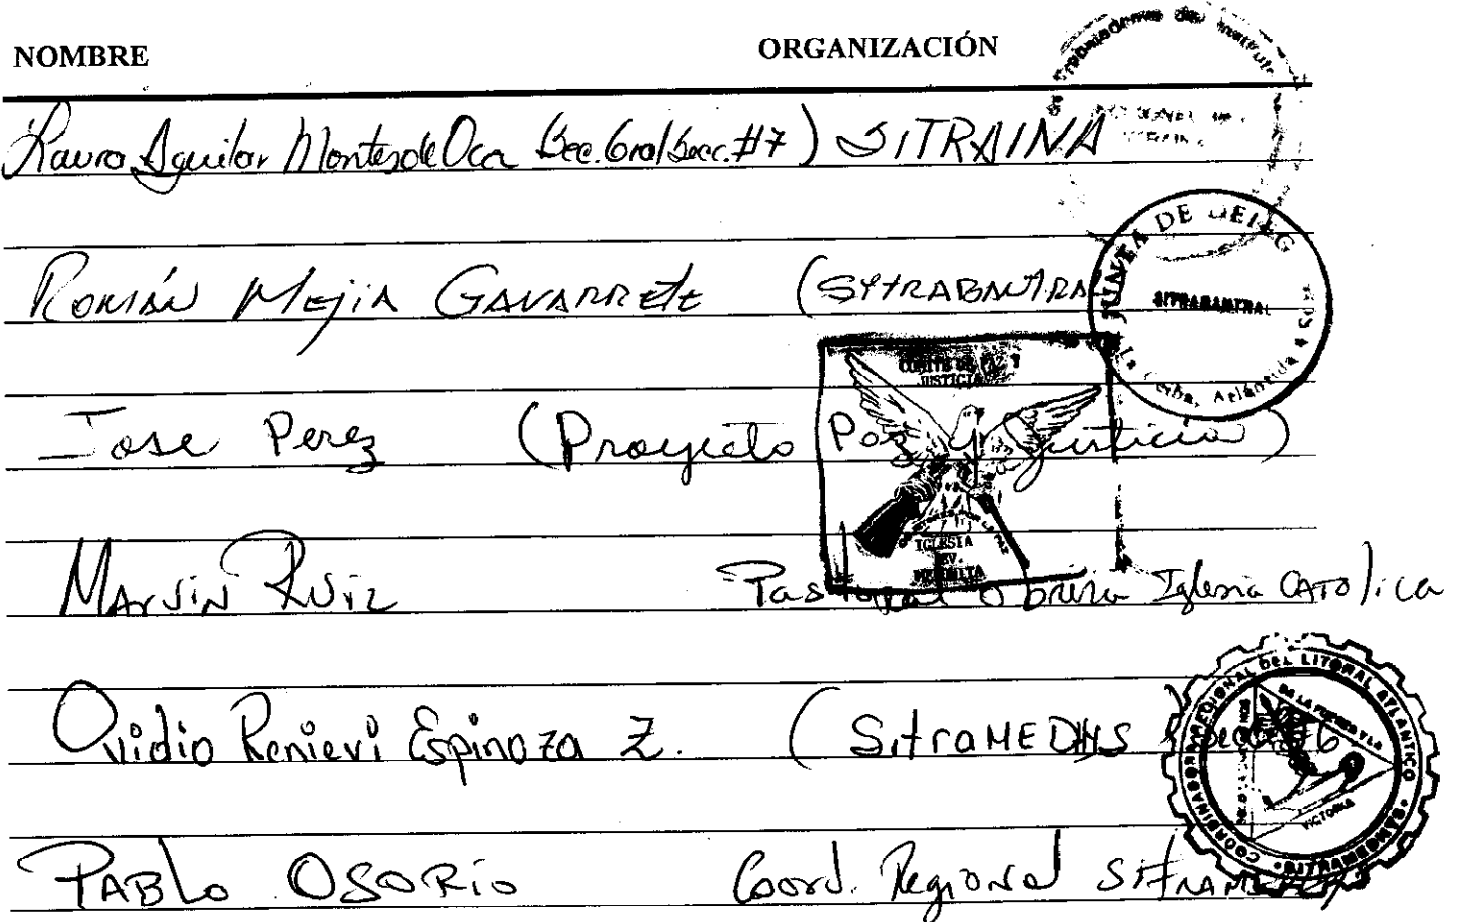 NOMBRE ORGANIZACIÓN
Lauro Aguilar Montes de Oca Sec. Gral Secc. #7) SITRAINA
Román Mejia Gavarrete (SITRABANTRAL
JUNTA DE
SITRABANTRAL
La Ceiba, Atlántida
COMITE DE PAZ Y
JUSTICIA
Jose Perez (Proyecto Paz y Justicia)
IGLESIA
EV.
MENONITA
Marvin Ruiz Pastoral Obrera Iglesia CATOlica
Ovidio Renieri Espinoza Z. (SitraMEDHYS Secc #6
COORDINADORA REGIONAL DEL LITORAL ATLANTICO
VICTORIA
PABLO OSORIO Coord. Regional